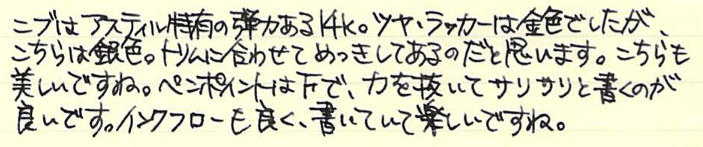 ニブはアスティル特有の弾力ある14k。ツヤ・ラッカーは金色でしたが、
こちらは銀色。トリムに合わせてめっきしてあるのだと思います。こちらも
美しいですね。ペンポイントは下で、力を抜いてサリサリと書くのが
良いです。インクフローも良く、書いていて楽しいですね。